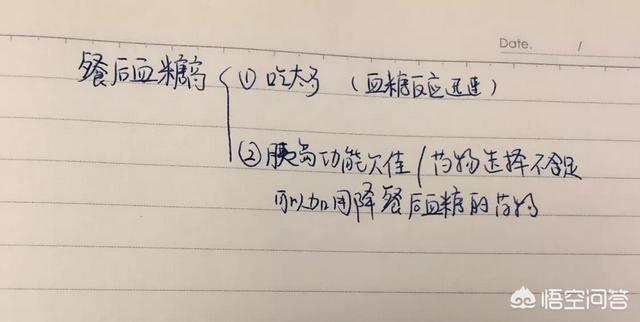 Date. /
餐后血糖高 ① 吃太多 (血糖反应迅速)
② 胰岛功能欠佳/药物选择不合适
可以加用降餐后血糖的药物
悟空问答